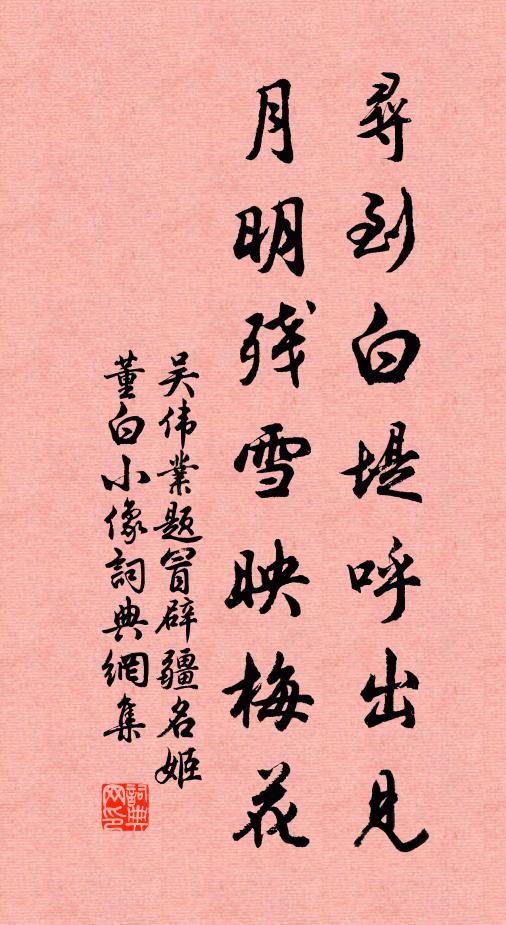 尋到白堤呼出見
月明残雪映梅花
吴伟業题冒辟疆名姬
董白小像詞典網集
詞典网印